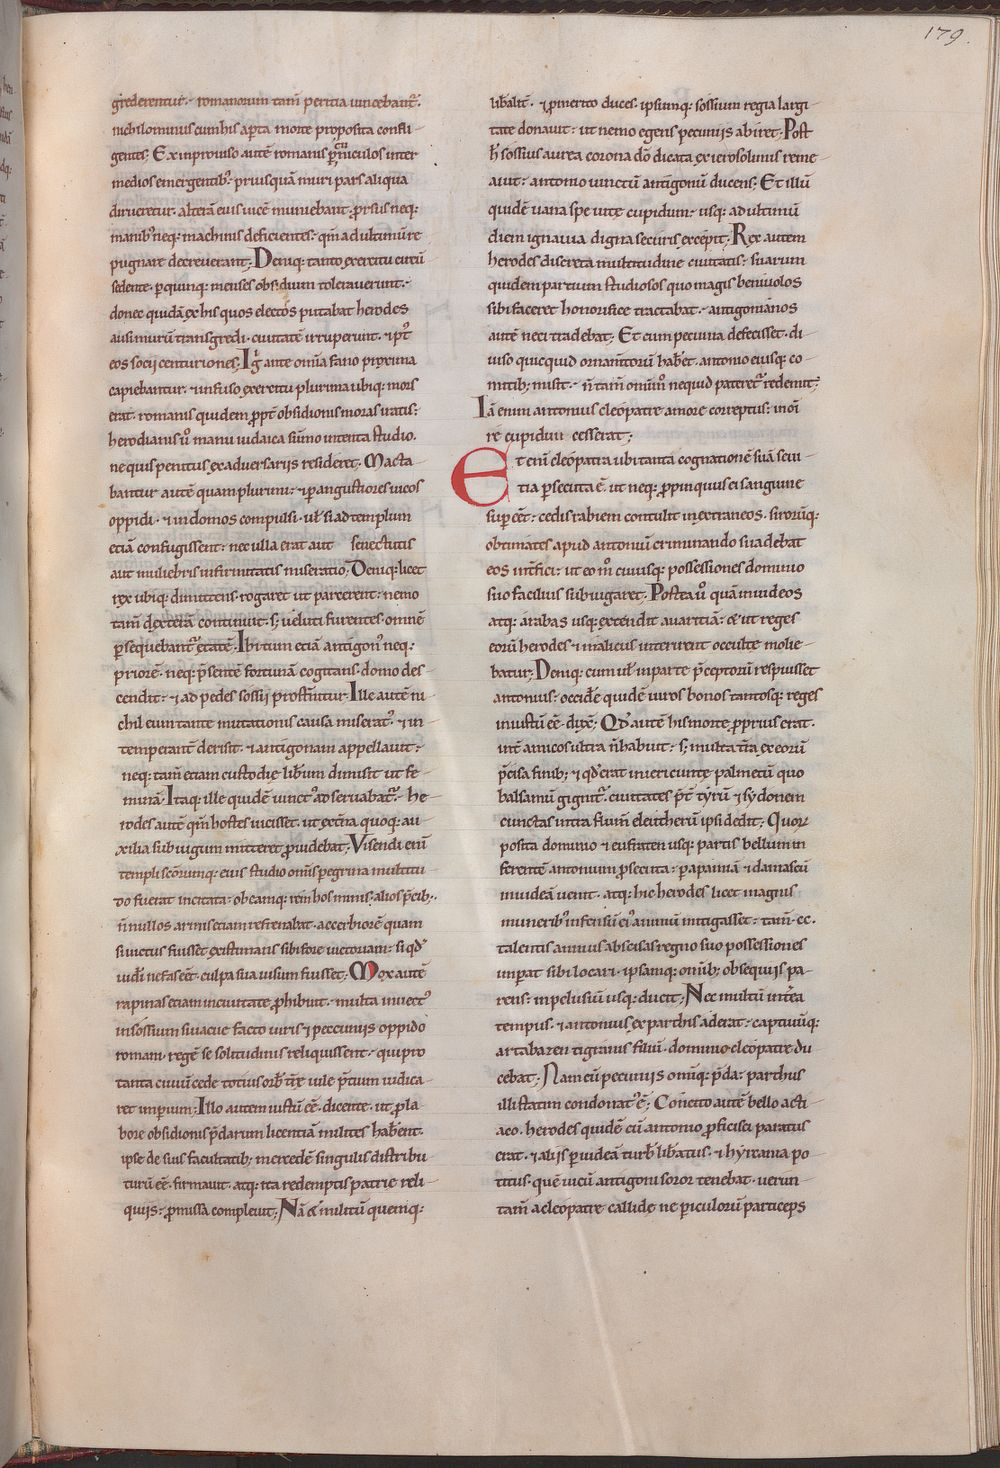 179.
grederentur· romanorum tam̄ peritia uincebant̄.
nichilominus cum his ap̄ta morte proposita confli-
gentes; Ex inprouiso autē romanis p̄ cuniculos inter
medios emergentib;᾿ priusquā muri pars aliqua
dirueretur· alterā eius uice muniebant· prorsus neq;
manib; neq; machinis deficientes· qm̄ ad ultimū re
pugnare decreuerant; Deniq; tanto exercitu circū
sedente· p quinq; menses obsidium tolerauerunt·
donec quidā ex his quos electos putabat herodes
ausi murū transgredi· ciuitatē irruperunt· & p᾿t
eos socij centuriones; Ig̃ ante omīa fano proxima
capiebantur· & infuso exercitu plurima ubiq; mors
erat· romanis quidem p̄pt obsidionis moras iratis;
herodianis u᾿o manu iudaica sūmo intenta studio·
ne quis penitus ex aduersarijs resideret· Macta
bantur autē quamplurimi· & p angustiores uicos
oppidi· & in domos compulsi· uł si ad templum
etiā confugissent· nec ulla erat aut senectutis
aut muliebris infirmitatis miseratio; Deniq; licet
rex ubiq; dimittens rogaret ut parcerent· nemo
tam̄ dexterā continuit· s; ueluti furentes omnē
p̄sequebant̄ etatē· Ibi tum etiā antigon᾿ neq;
priorē· neq; p̄sentē fortunā cogitans· domo des
cendit· & ad pedes sossii prosternitur· Ille autē ni
chil eum tante mutationis causa miserat᾿· & in
temperant̄ derisit· & antigonam appellauit·
neq; tam̄ etiam custodię lib̄um dimisit ut fe
minā· Itaq; ille quidē uinct᾿ adseruabat̄· he
rodes autē qm̄ hostes uicisset· ut ext̄na quoq; au
xilia sub iugum mitteret p̄uidebat; Visendi enī
templi sc̄orumq; eius studio omīs p̄egrina multitu
do fuerat incitata· ob eamq; rem hos minis· alios p̄cib;·
n̄nullos armis etiam refrenabat· acerbiorē quam
si uictus fuisset existimans sibi fore uictoriam· si qd᾿
uidi nefas eēt· culpa sua uisum fuisset; Mox autē
rapinas etiam in ciuitate p̄hibuit· multa inuect᾿
in sossium si uacue facto uiris & peccuniis oppido
romani· regē se solitudinis reliquissent· qui pro
tanta ciuiū cede totius orb̄ tr̄e uile p̄tium iudica
ret imperium· Illo autem iustū eē dicente· ut p̄ la
bore obsidionis p̄darum licentiā milites hab̄ent·
ipse de suis facultatib; mercedē singulis distribu
turū eē firmauit· atq; ita redemptis patrie reli
quiis· p̄missa compleuit; Nā & militū quemq;
lib̄alit̄· & p merito duces· ipsumq; sossium regia largi-
tate donauit· ut nemo egens pecunijs abiret· Post
h̄ sossius aurea corona dō dicata ex ierosolimis reme
auit· antonio uinctū antigonū ducens; Et illū
quidē uana spe uite cupidum· usq; ad ultimū
diem ignauia digna securis excepit; Rex autem
herodes discreta multitudine ciuitatis· suarum
quidem partium studiosos quo magis beniuolos
sibi faceret honorifice tractabat· antigonianos
autē neci tradebat; Et cum pecunia defecisset· di-
uiso quicquid ornam̄torū hab̄et· antonio eiusq; co-
mitib; misit· n̄ tam̄ omīm᾿ ne quid pateret̄ redemit;
Iā enim antonius cleopatre amore correptus· in oī
re cupidini cesserat;
Et enī cleopatra ubi tanta cognationē suā seui-
tia p̄secuta ē· ut neq; p̄pinquus ei sanguine
sup eēt· cedis rabiem contulit in extraneos· sirorūq;
obtimates apud antoniū criminando suadebat
eos int̄fici· ut eo m᾿ cuiusq; possessiones dominio
suo facilius subiugaret; Postea u᾿o quā in iudeos
atq; arabas usq; extendit auaritiā· & ut reges
eorū herodes & malicus interirent occulte molie-
batur; Deniq; cum uł in parte p̄ceptorū respuisset
antonius· occidē quidē uiros bonos tantosq; reges
iniustū eē duxit; Qd᾿ autē his morte p̄prius erat·
int̄ amicos ultra n̄ habuit· s; multa tr̄a ex eorū
p̄cisa finib; & qd᾿ erat in iericunte palmetū quo
balsamū gignit̄· ciuitates p̄t tyrū & sydonem
cunctas intra fluuiū eleutherū ipsi dedit; Quor
posita dominio & eufraten usq; partis bellum in
ferentē antonium p̄secuta· p apamiā & damascū
in iudeā uenit· atq; hic herodes licet magnis
munerib; infensū ei᾿ animū mitigasset· tam̄ ·cc·
talentis annuis abscisas regno suo possessiones
impat sibi locari· ipsamq; omīb; obsequiis pa-
rens· in pelusiū usq; ducit; Nec multū int̄ea
tempus· & antonius ex parthis aderat· captiuūq;
artabazen tigranis filiū· domino cleopatre du
cebat; Nam cū pecuniis omniq; p̄da· parthus
illi statim condonat᾿ ē; Concito autē bello acti
aco· herodes quidē cū antonio p̄ficisci paratus
erat· & aliis p iudeā turb̄ lib̄atus· & hyrcania po
titus· quē uicū antigoni soror tenebat· uerum
tam̄ a cleopatre callide ne periculorū particeps